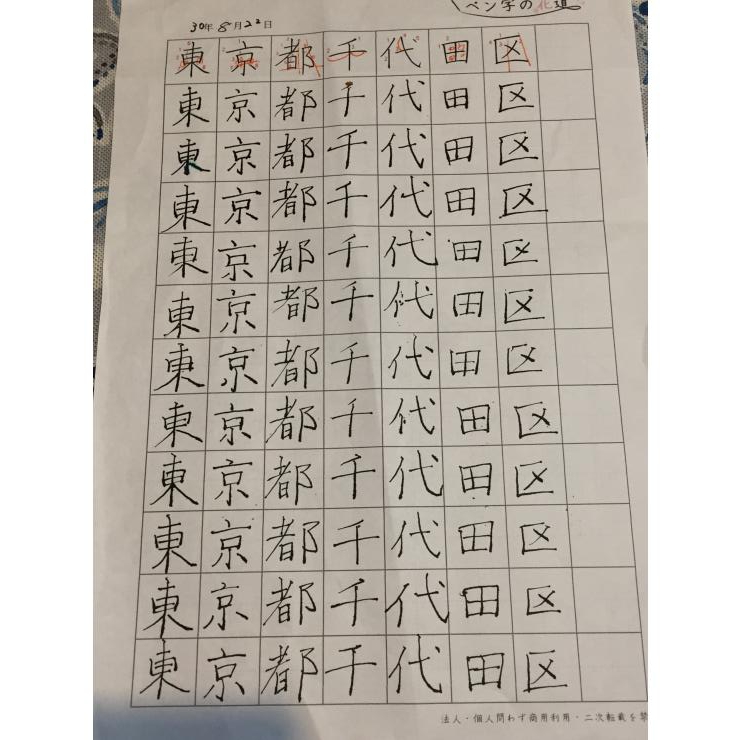 ペン字の花道
30年8月22日
東京都千代田区
東京都千代田区
東京都千代田区
東京都千代田区
東京都千代田区
東京都千代田区
東京都千代田区
東京都千代田区
東京都千代田区
東京都千代田区
東京都千代田区
東京都千代田区
法人・個人問わず商用利用・二次転載を禁